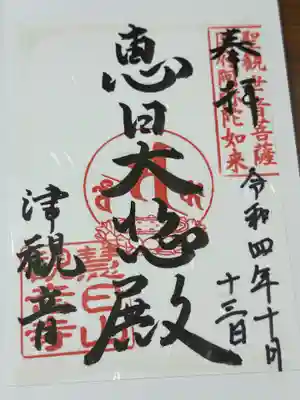 奉拝
聖観世音菩薩
国府阿弥陀如来
令和四年十月
十三日
恵日大悲殿
津觀音
慧日山